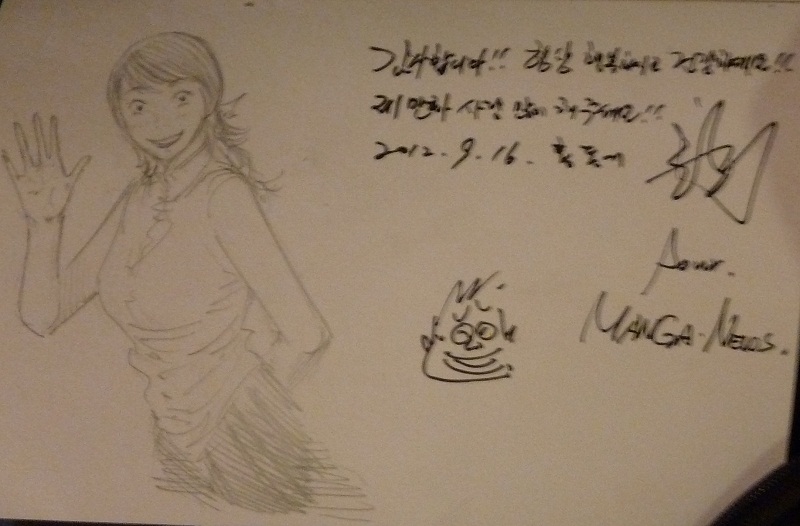 감사합니다!! 항상 행복하시고 건강하세요!!
제 만화 사랑 많이 해주세요!!
2012. 9. 16.
Pour.
MANGA-NEWS.